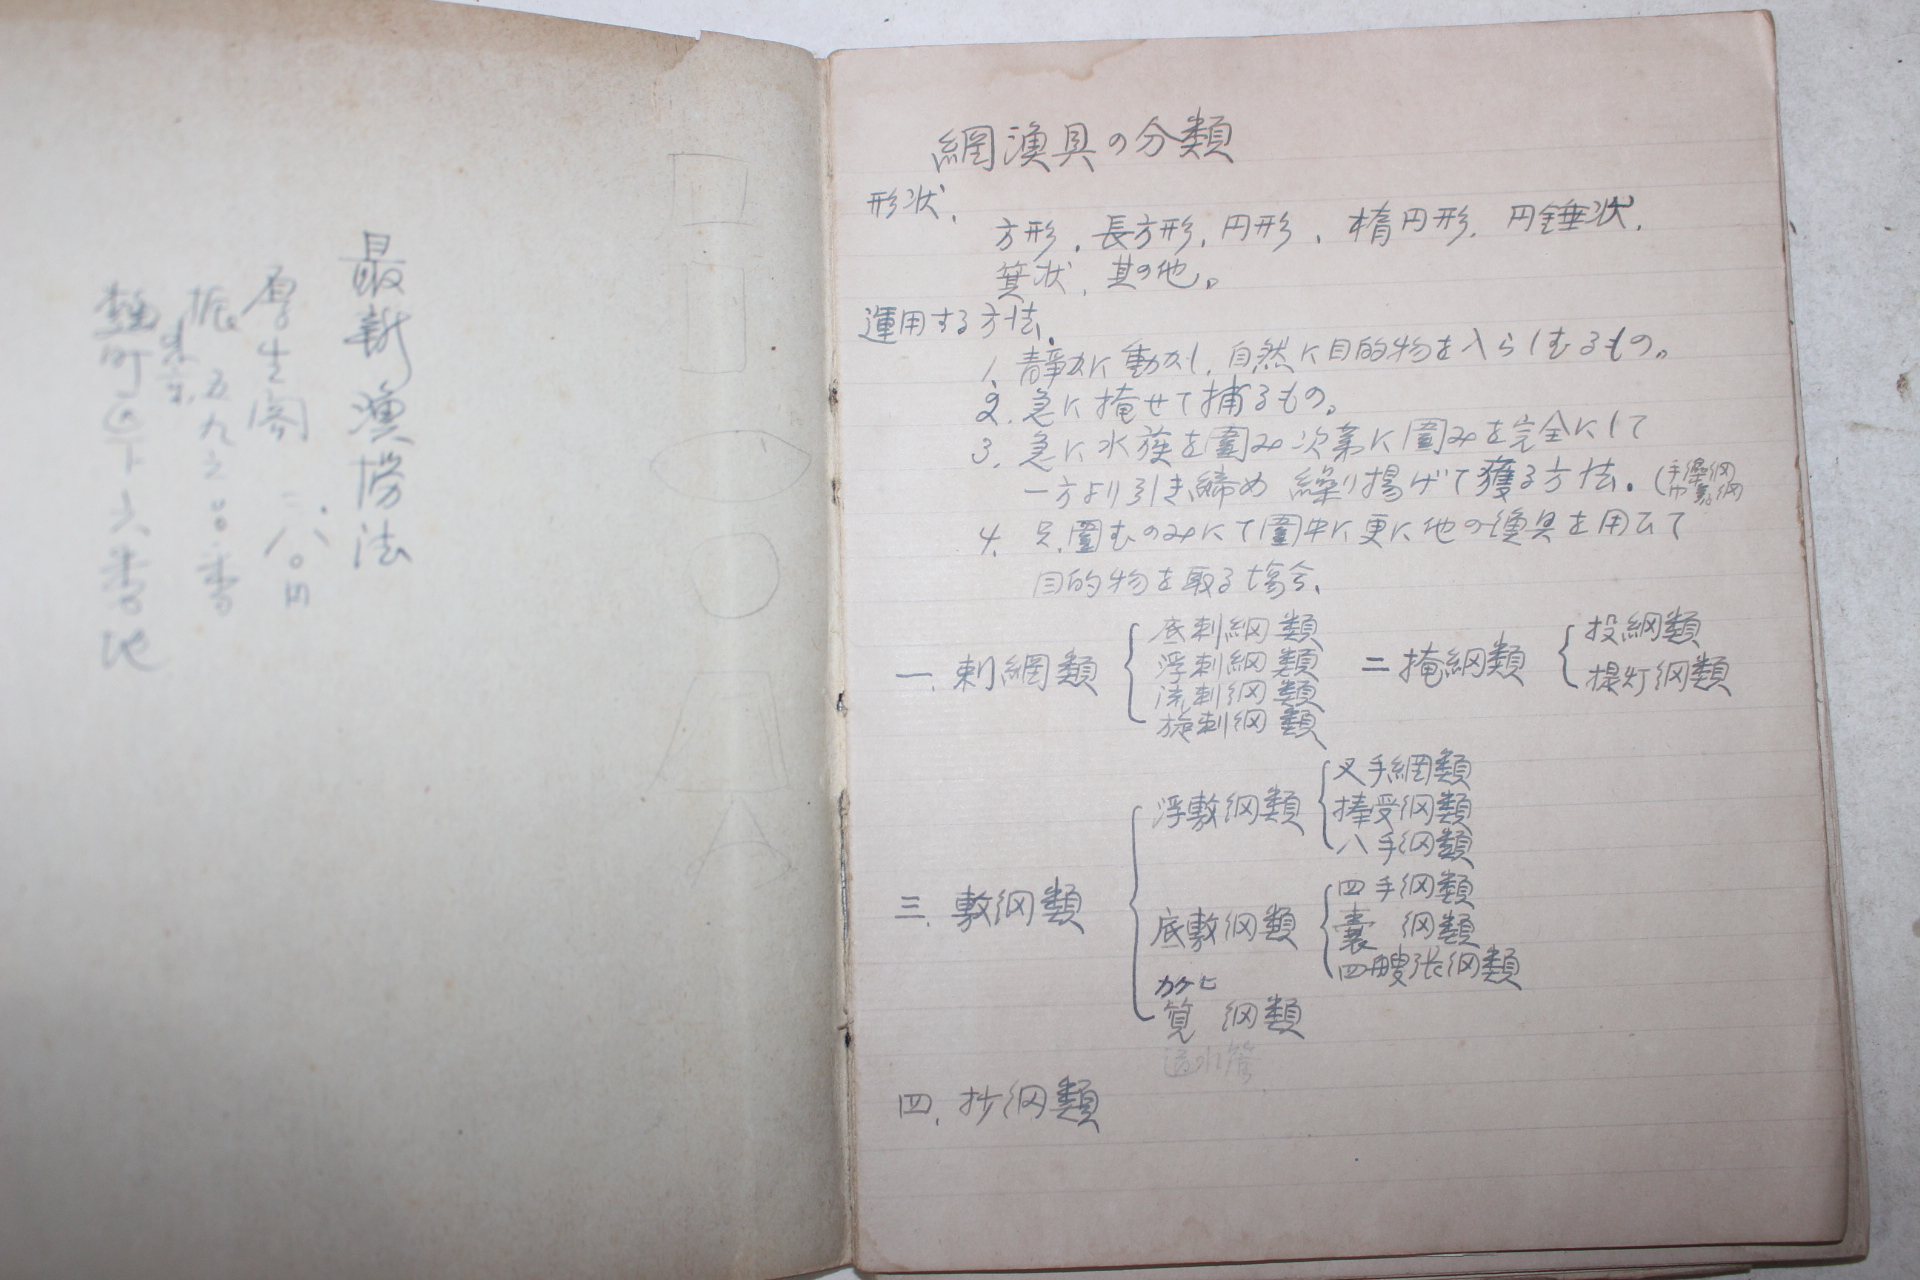 最新漁撈法
厚生閣 二.八〇円
振 東京 五九六〇〇番
麹町区下六番地
網漁具の分類
形状、
方形、長方形、円形、楕円形、円錘状、
箕状、其の他。
運用する方法、
1. 静かに動かし、自然に目的物を入らしむるもの。
2. 急に掩せて捕るもの。
3. 急に水族を圍み次第に圍みを完全にして
一方より引き締め 繰り揚げて獲る方法。(手繰網
巾着網
4. 只圍むのみにて圍中に更に他の漁具を用ひて
目的物を取る場合、
一、刺網類
底刺網類
浮刺網類
流刺網類
旋刺網類
二 掩網類
投網類
提灯網類
三、敷網類
浮敷網類
叉手網類
捧受網類
八手網類
底敷網類
四手網類
囊 網類
四艘張網類
カケヒ
筧 網類
過水管
四、抄網類